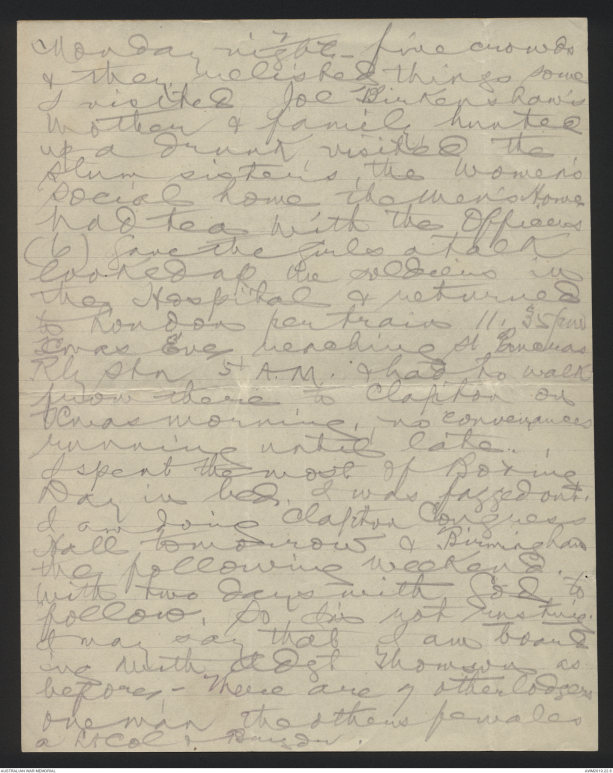 Monday night - fine crowds
& they relished things some
I visited Joe Birkenshaw's
Mother & family hunted
up a drunk visited the
slum sisters, the Women's
social home the Men's Home
had tea with the Officers
(6) gave the girls a talk
looked up the soldiers in
the Hospital & returned
to London per train 11.35 pm
Xmas Eve reaching St Pancras
Rly Stn 5 A.M. & had to walk
from there to Clapton on
Xmas morning, no conveyances
running until late.
I spent the most of Boxing
Day in bed. I was fagged out.
I am doing Clapton Congress
Hall tomorrow & Birmingham
the following weekend.
with two days with God to
follow. So I'm not rusting.
I may say that I am board
ing with Adjt Thomson as
before, - There are 7 other lodgers
one man the others females
a Lt Col &
AUSTRALIAN WAR MEMORIAL